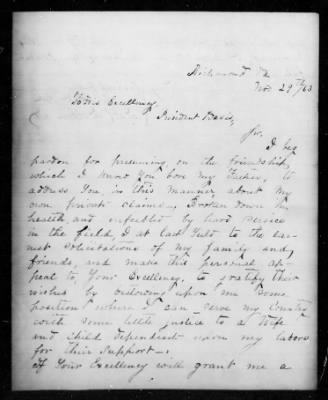 Richmond Va
Nov 29th/63
To His Excellency,
President Davis,
Sir.
I beg
pardon for presuming on the friendship,
which I know You bore my Father, to
address You in this manner about my
own private claims. Broken down in
health and enfeebled by hard service
in the field I at last Yield to the ear-
nest solicitations of my family and
friends, and make this personal ap-
peal to Your Excellency, to gratify their
wishes by bestowing upon me some
position where I can serve my Country
with some little justice to a Wife
and child dependent upon my labors
for their support.
If Your Excellency will grant me a